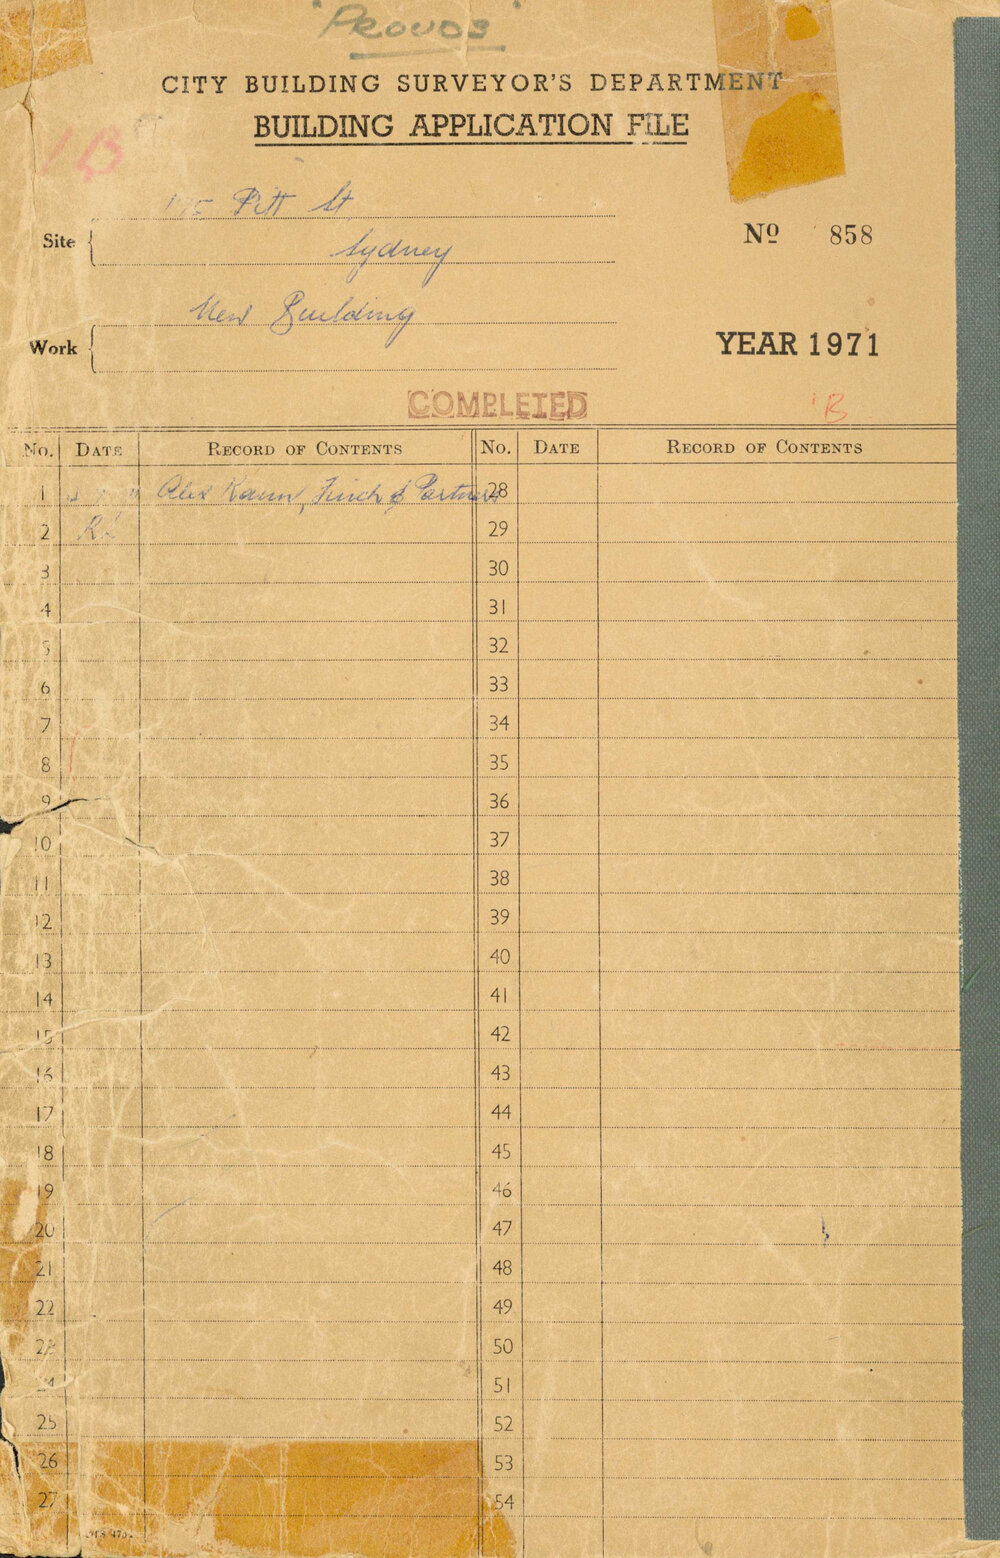 "PROUDS"
CITY BUILDING SURVEYOR'S DEPARTMENT
BUILDING APPLICATION FILE
1B
Pitt St.
Site
Sydney
Nº 858
New Building
Work
YEAR 1971
COMPLETED
'B
No. DATE RECORD OF CONTENTS No. DATE RECORD OF CONTENTS
1 Alex Kann, Finch & Partners 28
2 RL 29
3 30
4 31
5 32
6 33
7 34
8 35
9 36
10 37
11 38
12 39
13 40
14 41
15 42
16 43
17 44
18 45
19 46
20 47
21 48
22 49
23 50
24 51
25 52
26 53
27 54